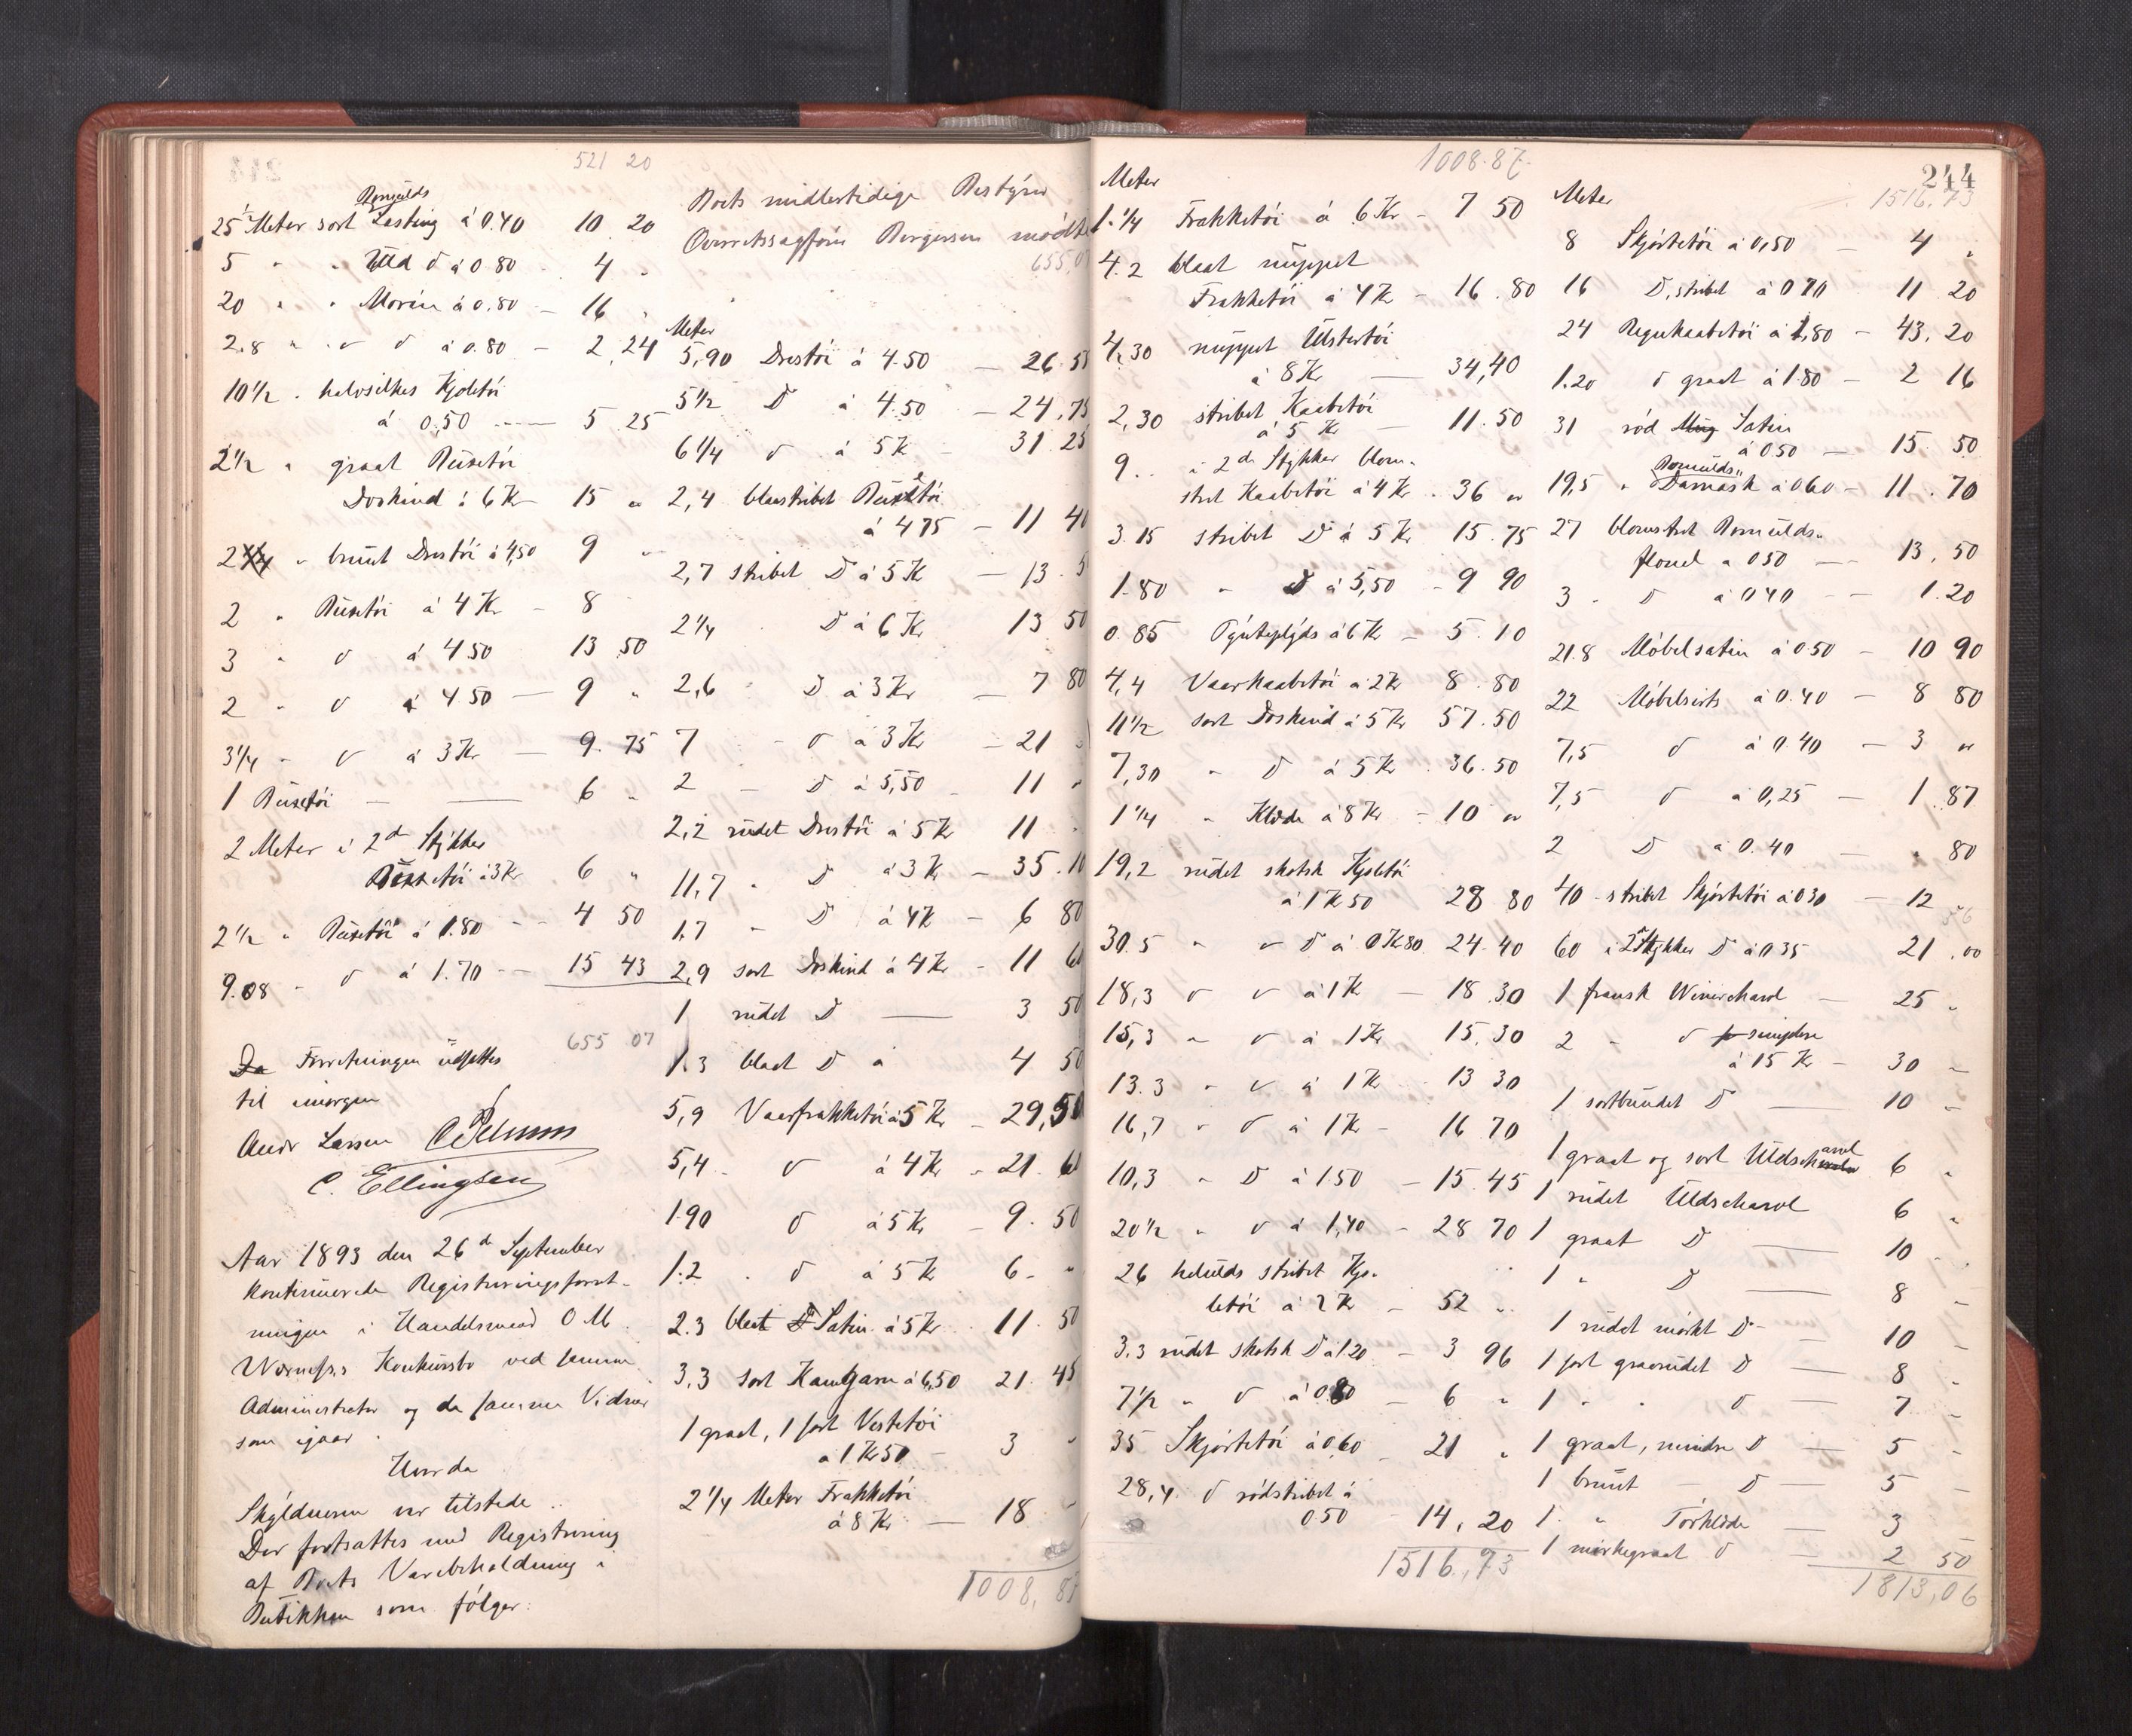 521 20
Bomulds
25½ Meter sort Lasting á 0.40 10 20
5 " " Uld d á 0 80 4 "
20 " " Morin á 0.80 – 16 "
2.8 " " d á 0.80 – 2 24
10½ " halvsilkes Kjoletöi
á 0,50 — 5 25
2½ " graat Buxetöi
Doskind á 6 Kr 15 "
2 " brunt Drestöi á 4,50 9 "
2 " Buxetöi á 4 Kr – 8
3 " d á 4 50 13 50
2 " d á 4 50 — 9 "
3¼ " d á 3 Kr — 9. 75
1 Buxetöi — 6 "
2 Meter i 2de Stykker
Buxetöi á 3 Kr 6 "
2½ " Buxetöi á 1.80 – 4 50
9.08 " d á 1.70 – 15 43
655 07
Da Forretningen udsattes
til imorgen
Andr Larsen
C. Ellingsen
Aar 1893 den 26de September
kontinuerede Registreringsforret-
ningen i Handelsmand O M
Konkursbo ved samme
Administrator og de samme Vidner
som igaar.
Hvorda
Skyldneren var tilstede ..
Der fortsattes med Registrering
af Boets Varebeholdning i
Butikken som fölger:
Boets midlertidige Bestyrer
Overretssagförer Borgersen mödte
655,0
Meter
5,90 Drestöi á 4.50 — 26.55
5½ D á 4.50 — 24,75
6¼ d á 5 K – 31 25
2,4 blaastribet Buxetöi
á 4 75 – 11 40
2,7 stribet D á 5 K — 13.5
2¼ D á 6 Kr 13 50
2,6 D á 3 Kr — 7 80
7 – d á 3 Kr – 21
2 – D á 5,50 – 11 "
2,2 rudet Drestöi á 5 Kr 11 "
11,7 " D á 3 K – 35.10
1.7 " D á 4 K – 6 80
2,9 sort Doskind á 4 Kr – 11 60
1 rudet D — 3 50
1.3 blaat D á 4 50
5,9 Vaarfrakketöi á 5 Kr – 29,50
5,4 – d á 4 Kr – 21. 60
1.90 d á 5 Kr – 9. 50
1.2 . d á 5 K 6 – "
2.3 blaat Satin á 5 Kr . 11. 50
3,3 sort Kamgarn á 6,50 21. 45
1 graat, 1 sort Vestetöi
á 1 Kr 50 – 3 "
2¼ Meter Frakketöi
á 8 Kr — 18 –
1008, 87
1008.87
Meter
1.¼ Frakketöi á 6 Kr – 7 50
4.2 blaat nuppet
Frakketöi á 4 Kr – 16.80
4,30 nuppet Ulstertöi
á 8 Kr — 34,40
2,30 stribet Kaabetöi
á 5 Kr – 11.50
9.. i 2de Stykker blom-
stret Kaabetöi á 4 Kr . 36 "
3.15 stribet D á 5 Kr 15.75
1.80 " D á 5,50 – 9 90
0.85 á 6 Kr – 5.10
4,4 Vaarkaabetöi á 2 Kr 8.80
11½ sort Doskind á 5 Kr 57.50
7,30 " D á 5 Kr . 36.50
1¼ " Klæde á 8 Kr – 10 "
19,2 rudet skotsk Kjoletöi
á 1 K 50 28 80
30.5 " d á 0 K 80 24.40
18,3 d á 1 K – 18.30
15,3 " d á 1 Kr 15.30
13.3 " d á 1 K 13 30
16,7 " d á 1 Kr – 16 70
10,3 " D á 1.50 – 15.45
20½ " d á 1,40 – 28 70
26 heluls stribet Kjo-
letöi á 2 K – 52 "
3.3 rudet skotsk D á 1 20 – 3 96
7½ " d á 0 80 – 6 "
35 Skjortetöi á 0.60 – 21 "
28,4 d rödstribet á
0.50 – 14, 20
1516,73
244
1516,73
Meter
8 Skjortetöi á 0,50 — 4 "
16 D. stribet á 0 70 11 20
24 Regnkaabetöi á 1,80 – 43. 20
1.20 d graat á 1.80 – 2 16
31 röd Satin
á 0.50 — 15. 50
Bomulds
19,5 " Damask á 0.60 – 11.70
27 blomstret Bomulds-
flonel á 0 50 — 13, 50
3 " D á 0.40 – 1.20
21.8 Möbelsatin á 0.50 – 10 90
22 Möbelsirts á 0.40 – 8 80
7,5 d á 0.40 – 3 "
7,5 d á 0,25 – 1.87
2 D á 0.40 — " 80
40 stribet Skjortetöi á 0 30 – 12
60 i 2 Stykker D á 0 35 21.00
1 fransk — 25 "
2 " d simplere
á 15 K – 30 –
1 sortbundet D — 10 –
1 graat og sort Uldschavl 6 "
1 rudet Uldschavl 6 "
1 graat D — 10 –
1 " D — 8 –
1 rudet mörkt D – 10 –
1 sort graarudet D — 8 –
1 " " d — 7 –
1 graat, mindre D — 5 –
1 brunt – d — 5 –
1 " Törklæde — 3
1 mörkegraat d — 2 50
1813,06